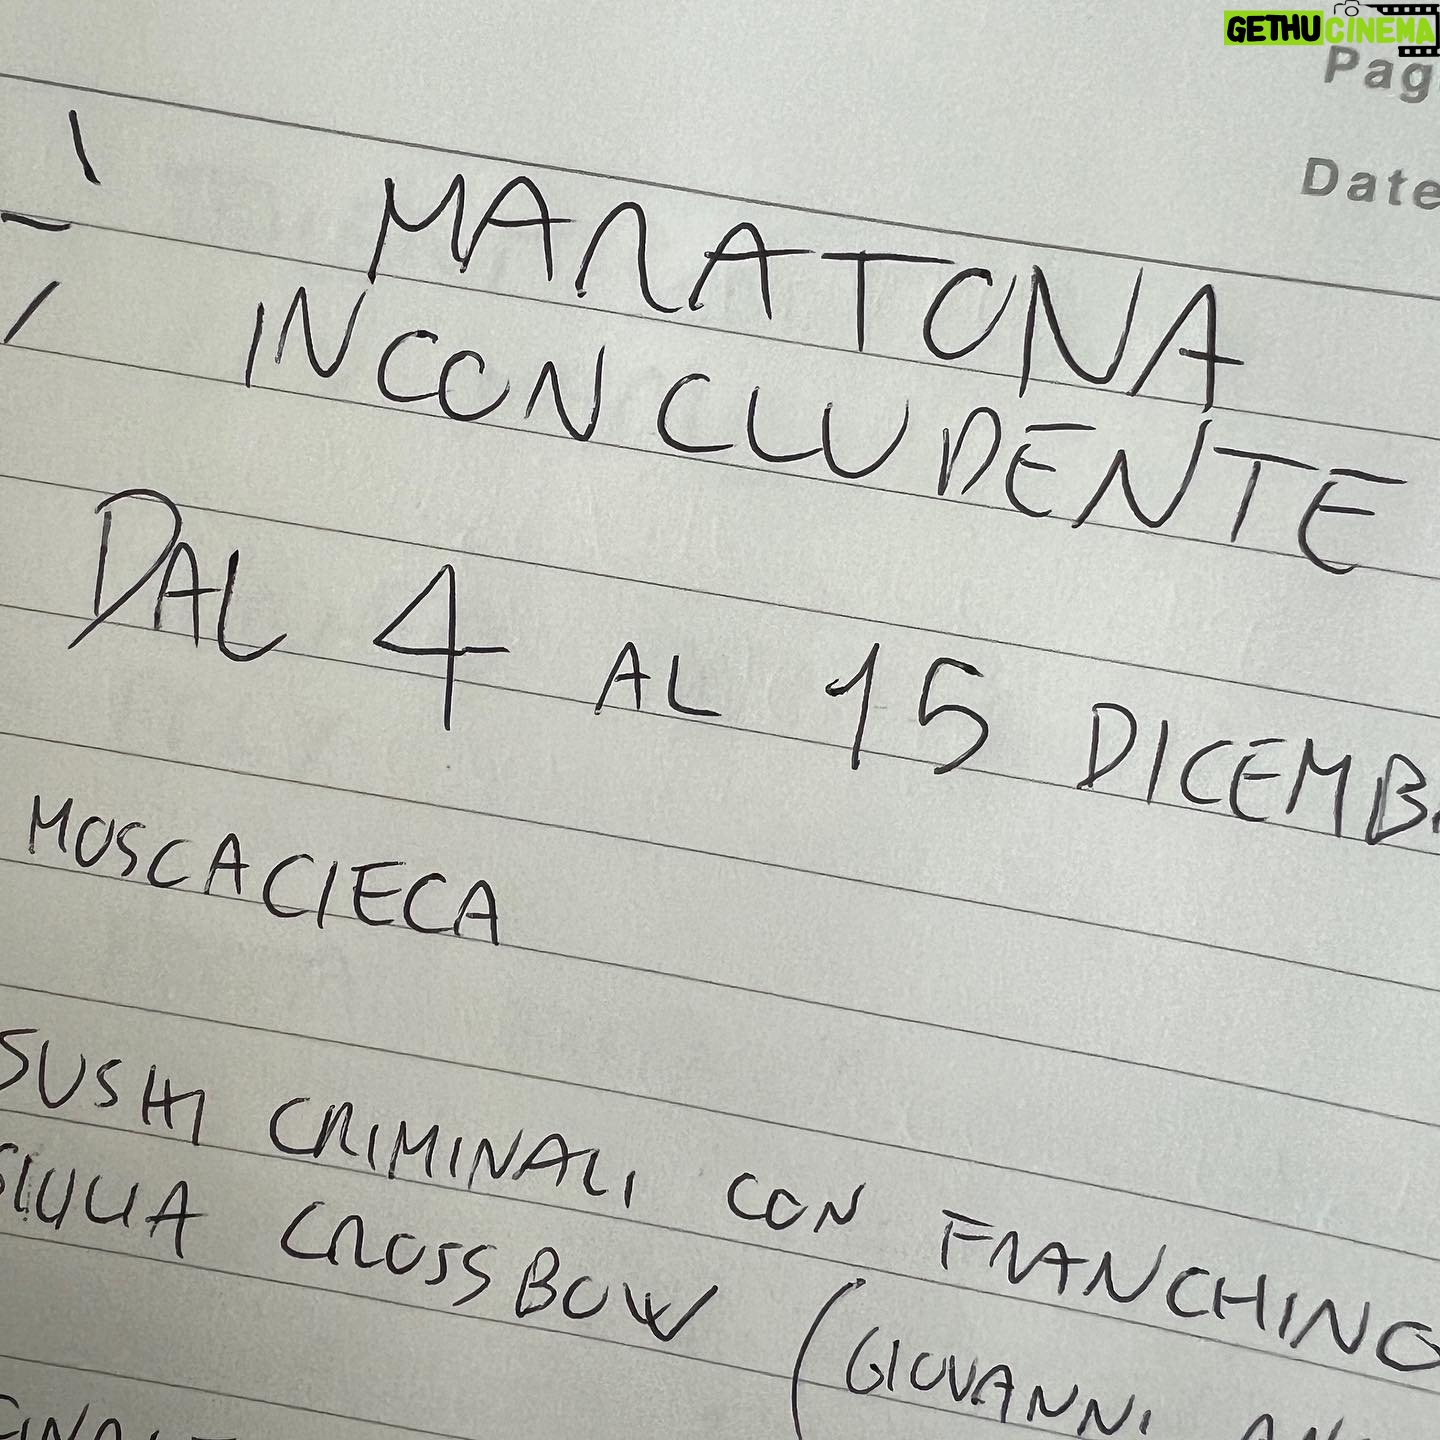 GETHUCINEMA
Pag
Date
MARATONA
INCONCLUDENTE
DAL 4 AL 15 DICEMB
MOSCACIECA
SUSHI CRIMINALI CON FRANCHINO
GIULIA CROSSBOW (GIOVANNI